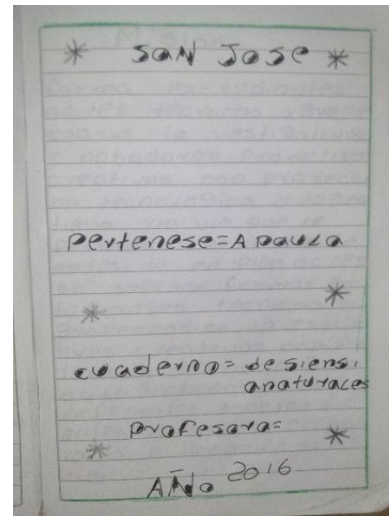 * SAN JOSE *
pertenese = A paula
cuaderno = de siensi
anaturaces
profesora =
AÑo 2016